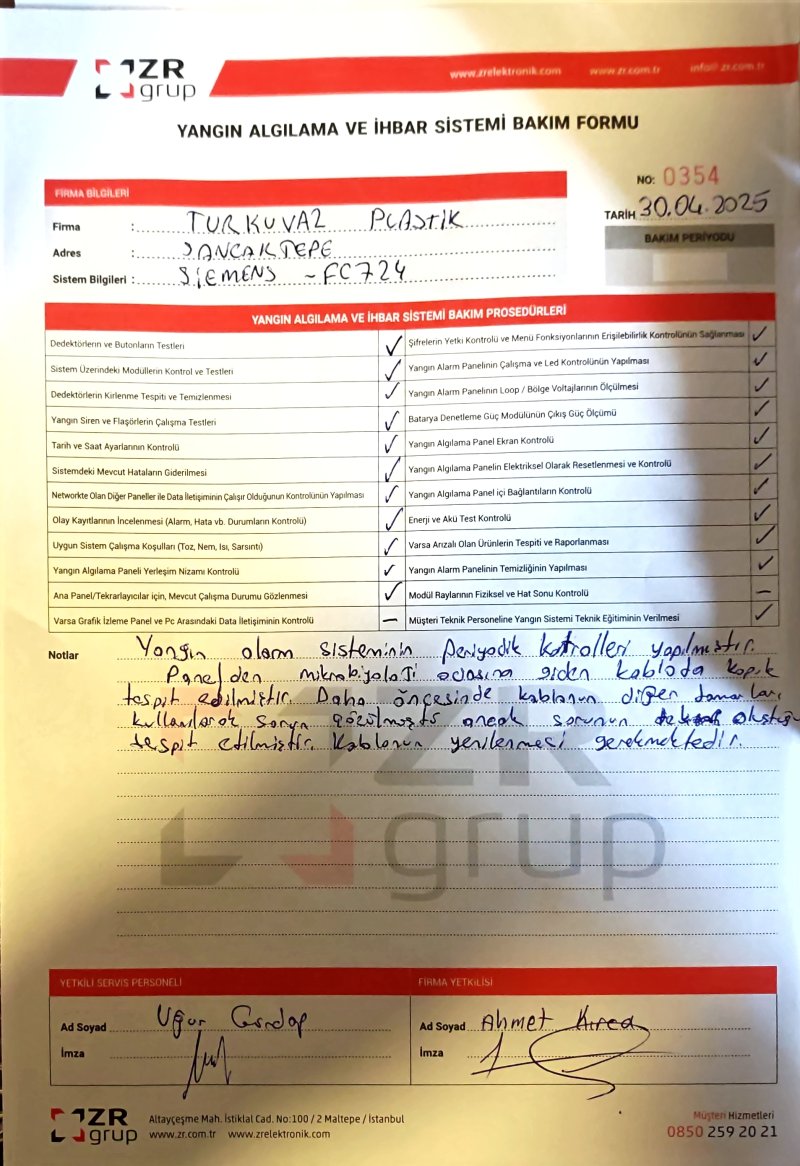 ZR
grup
www.zrelektronik.com www.zr.com.tr info@zr.com.tr
YANGIN ALGILAMA VE İHBAR SİSTEMİ BAKIM FORMU
NO: 0354
TARİH 30.04.2025
BAKIM PERİYODU
FİRMA BİLGİLERİ
Firma : TURKUVAZ PLASTİK
Adres : SANCAKTEPE
Sistem Bilgileri : SİEMENS - FC724
YANGIN ALGILAMA VE İHBAR SİSTEMİ BAKIM PROSEDÜRLERİ
Dedektörlerin ve Butonların Testleri ✓ Şifrelerin Yetki Kontrolü ve Menü Fonksiyonlarının Erişilebilirlik Kontrolünün Sağlanması ✓
Sistem Üzerindeki Modüllerin Kontrol ve Testleri ✓ Yangın Alarm Panelinin Çalışma ve Led Kontrolünün Yapılması ✓
Dedektörlerin Kirlenme Tespiti ve Temizlenmesi ✓ Yangın Alarm Panelinin Loop / Bölge Voltajlarının Ölçülmesi ✓
Yangın Siren ve Flaşörlerin Çalışma Testleri ✓ Batarya Denetleme Güç Modülünün Çıkış Güç Ölçümü ✓
Tarih ve Saat Ayarlarının Kontrolü ✓ Yangın Algılama Panel Ekran Kontrolü ✓
Sistemdeki Mevcut Hataların Giderilmesi ✓ Yangın Algılama Panelin Elektriksel Olarak Resetlenmesi ve Kontrolü ✓
Networkte Olan Diğer Paneller ile Data İletişiminin Çalışır Olduğunun Kontrolünün Yapılması ✓ Yangın Algılama Panel içi Bağlantıların Kontrolü ✓
Olay Kayıtlarının İncelenmesi (Alarm, Hata vb. Durumların Kontrolü) ✓ Enerji ve Akü Test Kontrolü ✓
Uygun Sistem Çalışma Koşulları (Toz, Nem, Isı, Sarsıntı) ✓ Varsa Arızalı Olan Ürünlerin Tespiti ve Raporlanması ✓
Yangın Algılama Paneli Yerleşim Nizamı Kontrolü ✓ Yangın Alarm Panelinin Temizliğinin Yapılması ✓
Ana Panel/Tekrarlayıcılar için, Mevcut Çalışma Durumu Gözlenmesi ✓ Modül Raylarının Fiziksel ve Hat Sonu Kontrolü –
Varsa Grafik İzleme Panel ve Pc Arasındaki Data İletişiminin Kontrolü – Müşteri Teknik Personeline Yangın Sistemi Teknik Eğitiminin Verilmesi ✓
Notlar Yangın alarm sisteminin periyodik kontrolleri yapılmıştır.
Panelden mikrobiyoloji odasına giden kabloda kopuk
tespit edilmiştir. Daha öncesinde kablonun diğer damarları
kullanılarak sorun çözülmüştü ancak sorunun tekrar oluştuğu
tespit edilmiştir. Kablonun yenilenmesi gerekmektedir.
ZR
grup
YETKİLİ SERVİS PERSONELİ FİRMA YETKİLİSİ
Ad Soyad Uğur Ad Soyad Ahmet
İmza İmza
ZR
grup
Altayçeşme Mah. İstiklal Cad. No:100 / 2 Maltepe / İstanbul
www.zr.com.tr www.zrelektronik.com
Müşteri Hizmetleri
0850 259 20 21